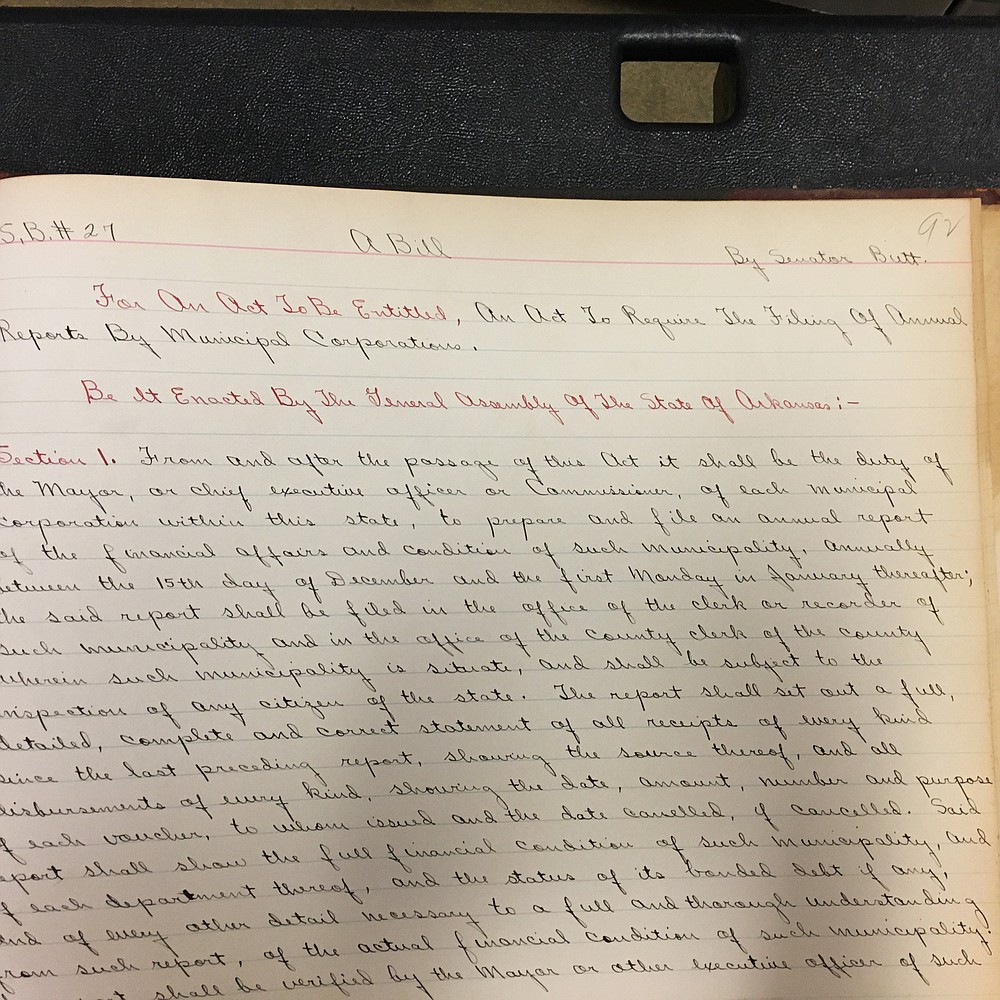 S.B.# 27 A Bill By Senator Butt. 92
For An Act To Be Entitled, An Act To Require The Filing Of Annual
Reports By Municipal Corporations.
Be It Enacted By The General Assembly Of The State Of Arkansas:-
Section 1. From and after the passage of this Act it shall be the duty of
the Mayor, or chief executive officer or Commissioner, of each municipal
corporation within this state, to prepare and file an annual report
of the financial affairs and condition of such municipality, annually
between the 15th day of December and the first Monday in January thereafter;
the said report shall be filed in the office of the clerk or recorder of
such municipality and in the office of the County clerk of the county
wherein such municipality is situate, and shall be subject to the
inspection of any citizen of the state. The report shall set out a full,
detailed, complete and correct statement of all receipts of every kind
since the last preceding report, showing the source thereof, and all
disbursements of every kind, showing the date, amount, number and purpose
of each voucher, to whom issued and the date cancelled, if cancelled. Said
report shall show the full financial condition of such municipality, and
of each department thereof, and the status of its bonded debt if any,
and of every other detail necessary to a full and thorough understanding
from such report, of the actual financial condition of such municipality.
shall be verified by the Mayor or other executive officer of such